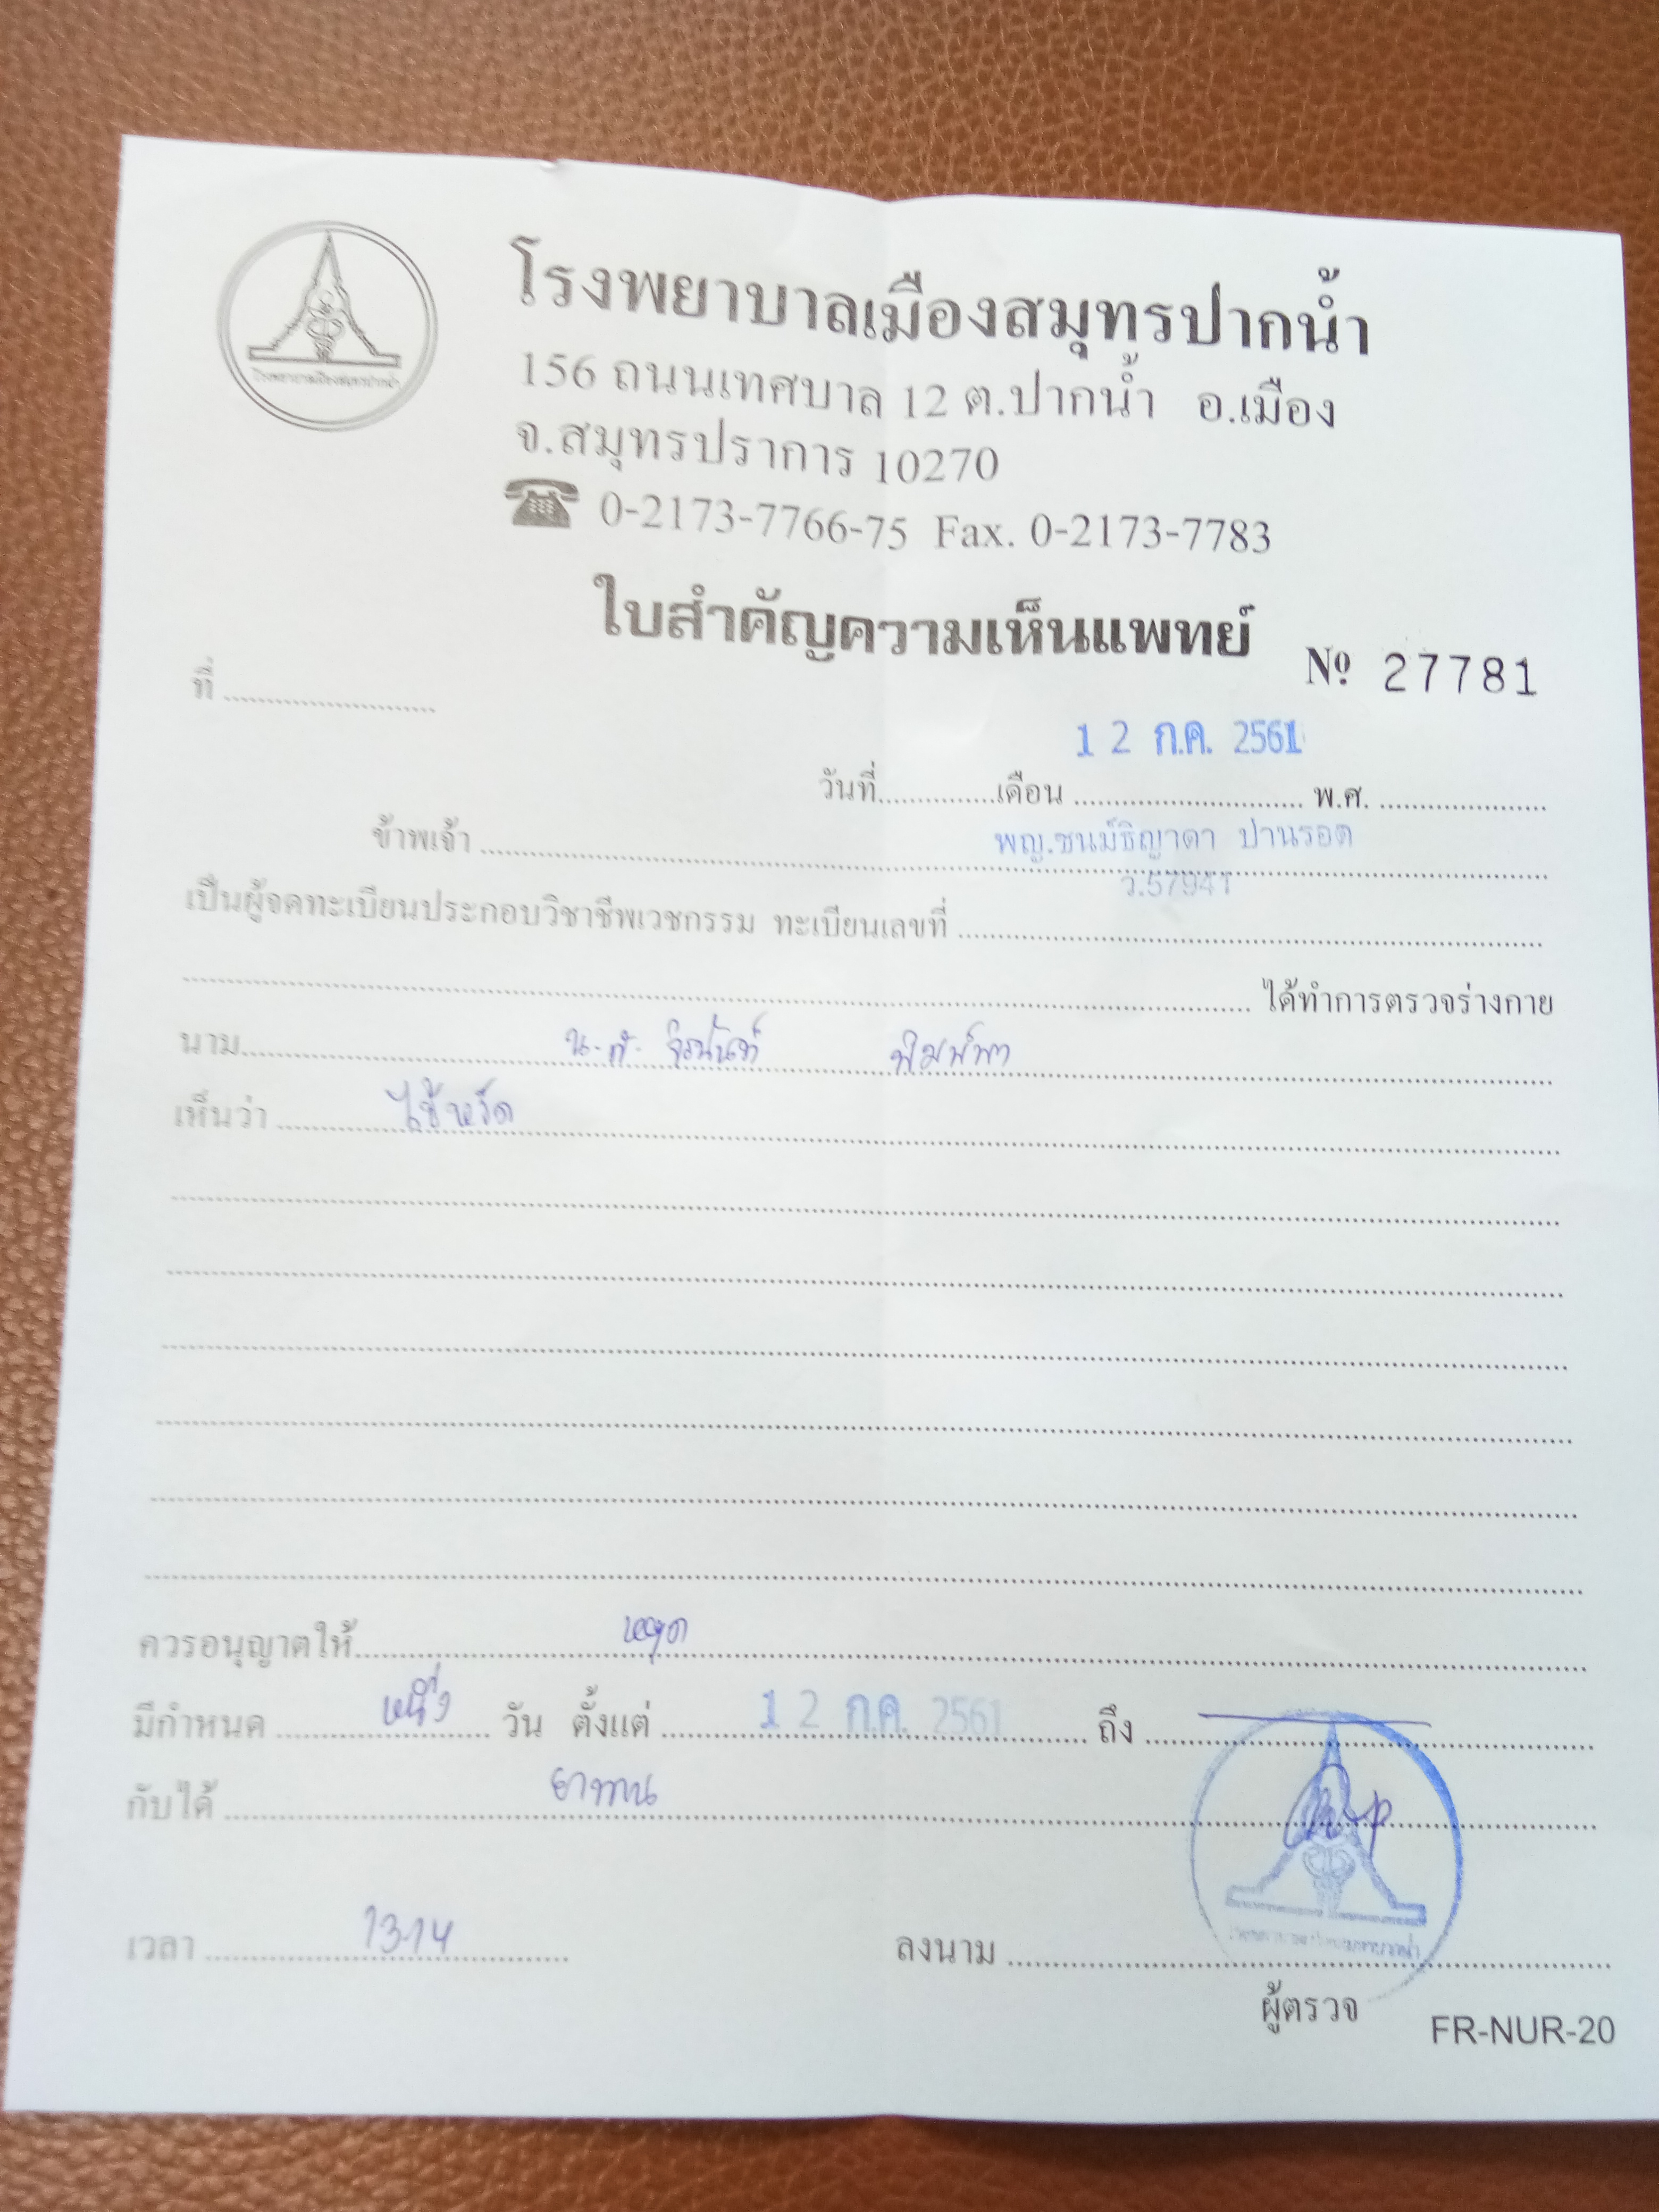 โรงพยาบาลเมืองสมุทรปากน้ำ
โรงพยาบาลเมืองสมุทรปากน้ำ
156 ถนนเทศบาล 12 ต.ปากน้ำ อ.เมือง
จ.สมุทรปราการ 10270
0-2173-7766-75 Fax. 0-2173-7783
ใบสำคัญความเห็นแพทย์
№ 27781
ที่
12 ก.ค. 2561
วันที่ เดือน พ.ศ.
ข้าพเจ้า พญ.ชนม์ธิญาดา ปานรอด
ว.57941
เป็นผู้จดทะเบียนประกอบวิชาชีพเวชกรรม ทะเบียนเลขที่
ได้ทำการตรวจร่างกาย
นาม น.ส. จิรนันท์ พิมพ์พา
เห็นว่า ไข้หวัด
ควรอนุญาตให้ หยุด
มีกำหนด หนึ่ง วัน ตั้งแต่ 12 ก.ค. 2561 ถึง
กับได้ ยาทาน
เวลา 13.14 ลงนาม
ผู้ตรวจ
FR-NUR-20